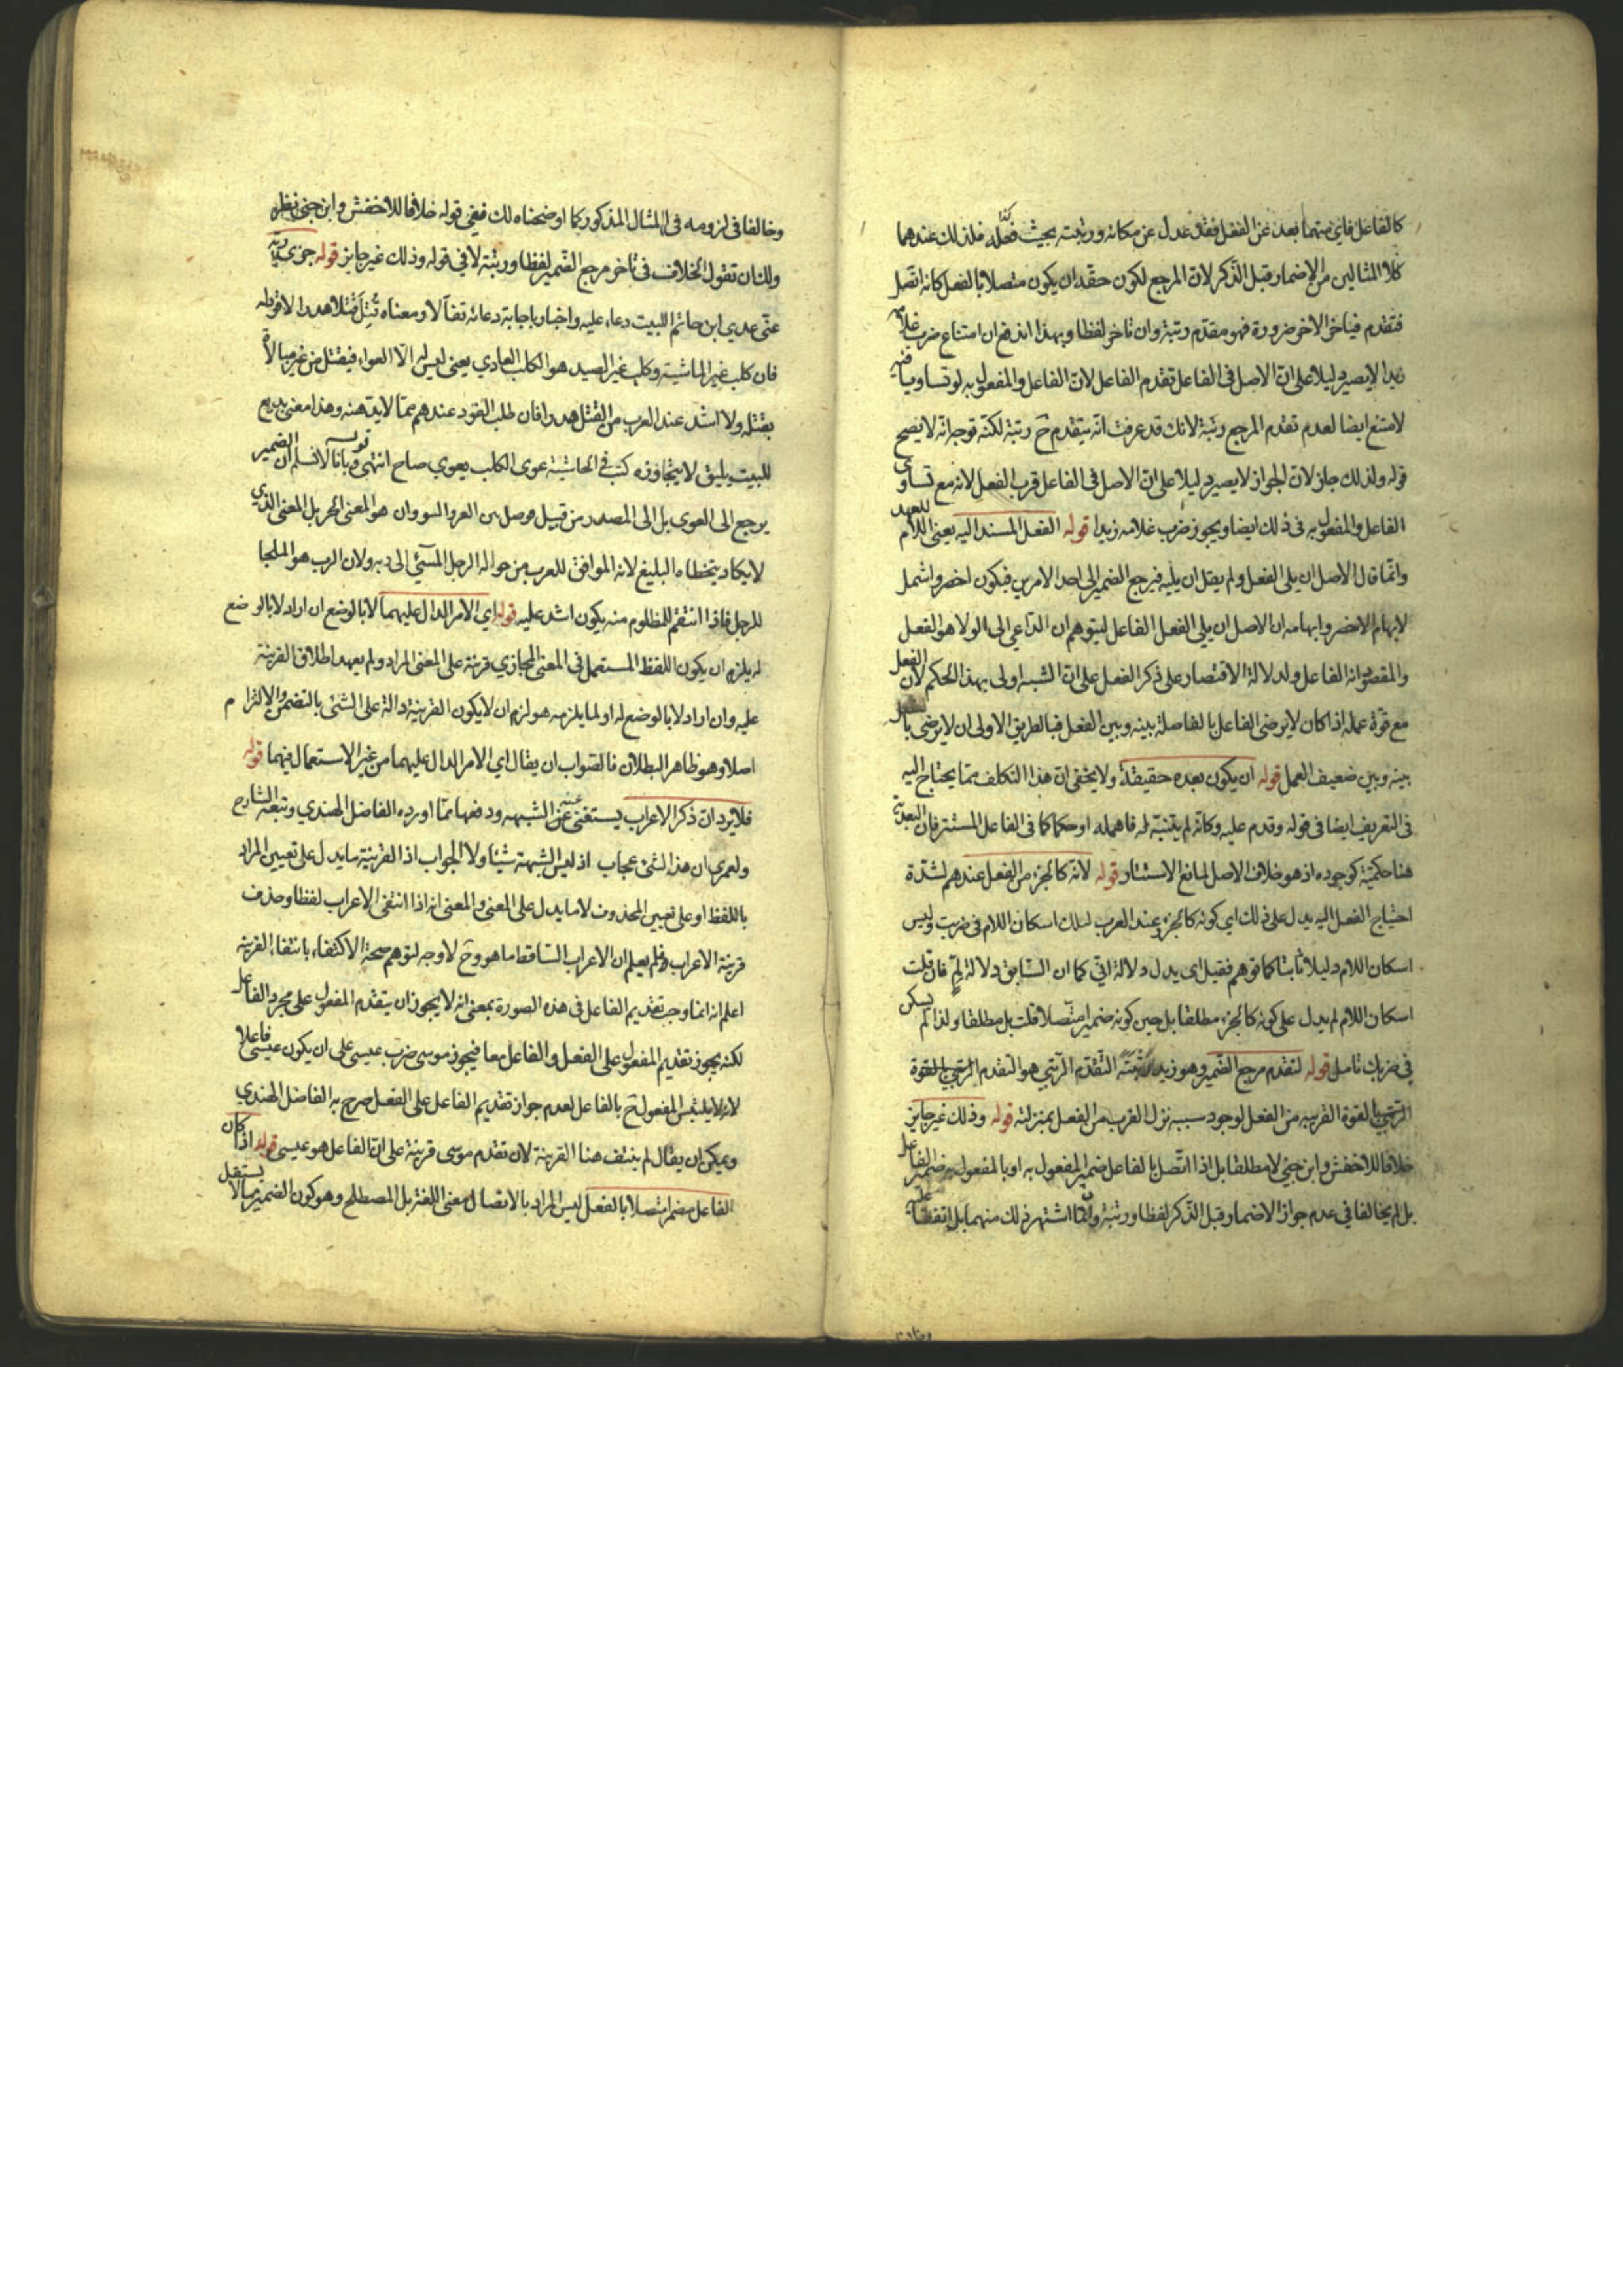 كالفاعل فاي منهما بعد عن الفعل فقد عدل عن مكانه ورتبته بحيث فلذلك عندهما
كلا المثالين من الاضمار قبل الذكر لان المرجع لكون حقه ان يكون متصلا بالفعل كانه اتصل
فتقدم فيتاخر الاخر ضرورة فهو مقدم رتبة وان تاخر لفظا وبهذا اندفع ان امتناع ضرب غلامه
زيدا لا يصير دليلا على ان الاصل في الفاعل تقدم الفاعل لان الفاعل والمفعول به لو تساويا فيه
لامتنع ايضا لعدم تقدم المرجع رتبة لانك قد عرفت انه يتقدم ح رتبة لكنه توجه انه لا يصح
قوله ولذلك جاز لان الجواز لا يصير دليلا على ان الاصل في الفاعل قرب الفعل لانه مع تساوي
الفاعل والمفعول به في ذلك ايضا ويجوز ضرب غلامه زيدا قوله الفعل المسند اليه يعني اللام للعهد
وانما قال الاصل ان يلي الفعل ولم يقل ان يليه فيرجع الضمير الى احد الامرين فيكون اخصر واشمل
لابهام الاخصر وابهامه ان الاصل ان يلي الفعل الفاعل ليتوهم ان الداعي الى الولا هو الفعل
والمقصود انه الفاعل ولدلالة الاقتصار على ذكر الفعل على ان الشبه اولى بهذا الحكم لان الفعل
مع قوة عمله اذا كان لا يرضى الفاعل بالفاصلة بينه وبين الفعل فبالطريق الاولى ان لا يرضى
بينه وبين ضعيف العمل قوله ان يكون بعده حقيقة ولا يخفى ان هذا التكلف مما يحتاج اليه
في التعريف ايضا في قوله وقدم عليه وكانه لم يتنبه له فاهمله او حكما كما في الفاعل المستتر فان البعدية
هنا حكمية كوجوده اذ هو خلاف الاصل لمانع الاستتار قوله لانه كالجزء من الفعل عندهم لشدة
احتياج الفعل اليه يدل على ذلك اي كونه كالجزء عند العرب لذلك اسكان اللام في ضربت وليس
اسكان اللام دليلا ثابتا كما توهم فقيل اي يدل دلالة اني كما ان السابق دلالة لم فان قلت
اسكان اللام لم يدل على كونه كالجزء مطلقا بل حين كونه ضميرا متصلا قلت بل مطلقا ولذا لم يسكن
في ضربك تامل قوله لتقدم مرجع الضمير وهو زيد رتبة التقدم الرتبي هو التقدم
بالقوة القريبة من الفعل لوجود سببه نزل القرب من الفعل بمنزلته قوله وذلك غير جايز
خلافا للاخفش وابن جني لا مطلقا بل اذا اتصل بالفاعل ضمير المفعول به او بالمفعول به ضمير الفاعل
بل لم يخالفا في عدم جواز الاضمار قبل الذكر لفظا ورتبة وانما اشتهر ذلك منهما بل اتفقا عليه
وخالفا في لزومه في المثال المذكور كما اوضحناه لك ففي قوله خلافا للاخفش وابن جني نظر
ولك ان تقول الخلاف في تاخر مرجع الضمير لفظا ورتبة لا في قوله وذلك غير جايز قوله جزى ربه
عني عدي ابن حاتم البيت دعاء عليه واخبار باجابة دعائه تفألا ومعناه قتل قتلا هدرا لا قود له
فان كلب غير الماشية وكلب غير الصيد هو الكلب العادي يعني ليس له الا العواء فيقتل من غير مبالاة
بقتله ولا اشد عند العرب من القتل هدرا فان طلب القود عندهم مما لابد منه وهذا معنى بديع
للبيت يليق لا يتجاوزه كتب في الحاشية عوى الكلب يعوي صاح انتهى وبانا لا نسلم ان الضمير
يرجع الى العوى بل الى المصدر من قبيل وصل بين العير والنزوان هو المعنى الجزيل المعنى الذي
لا يكاد يتخطاه البليغ لانه الموافق للعرب من حوالة الرجل المسئ الى ربه ولان الرب هو الملجا
للرجل فاذا انتقم للمظلوم منه يكون اشد عليه قوله اي الامر الدال عليهما لا بالوضع ان اراد لا بالوضع
له يلزم ان يكون اللفظ المستعمل في المعنى المجازي قرينة على المعنى المراد ولم يعهد اطلاق القرينة
عليه وان اراد لا بالوضع له او لما يلزمه هو لزم ان لا يكون القرينة دالة على الشئ بالتضمن والالتزام
اصلا وهو ظاهر البطلان فالصواب ان يقال اي الامر الدال عليهما من غير الاستعمال فيهما قوله
فلا يرد ان ذكر الاعراب يستغنى عنه الشبهه ودفعها مما اورده الفاضل الهندي وتبعه الشارح
ولعمري ان هذا لشئ عجاب اذ ليس الشبهة شيئا ولا الجواب اذ القرينة ما يدل على تعيين المراد
باللفظ او على تعيين المحذوف لا ما يدل على المعنى والمعنى انه اذا انتفى الاعراب لفظا وحذف
قرينة الاعراب فلم يعلم ان الاعراب الساقط ما هو وح لا وجه لتوهم صحة الاكتفاء بانتفاء القرينة
اعلم انه انما وجب تقديم الفاعل في هذه الصورة بمعنى انه لا يجوز ان يتقدم المفعول على مجرد الفاعل
لكنه يجوز تقديم المفعول على الفعل والفاعل معا فيجوز موسى ضرب عيسى على ان يكون عيسى فاعلا
لانه لا يلتبس المفعول ح بالفاعل لعدم جواز تقديم الفاعل على الفعل صرح به الفاضل الهندي
ويمكن ان يقال لم ينتف هنا القرينة لان تقدم موسى قرينة على ان الفاعل هو عيسى قوله اذا كان
الفاعل مضمرا متصلا بالفعل ليس المراد بالاتصال معنى اللغة بل المصطلح وهو كون الضمير مما لا يستقل